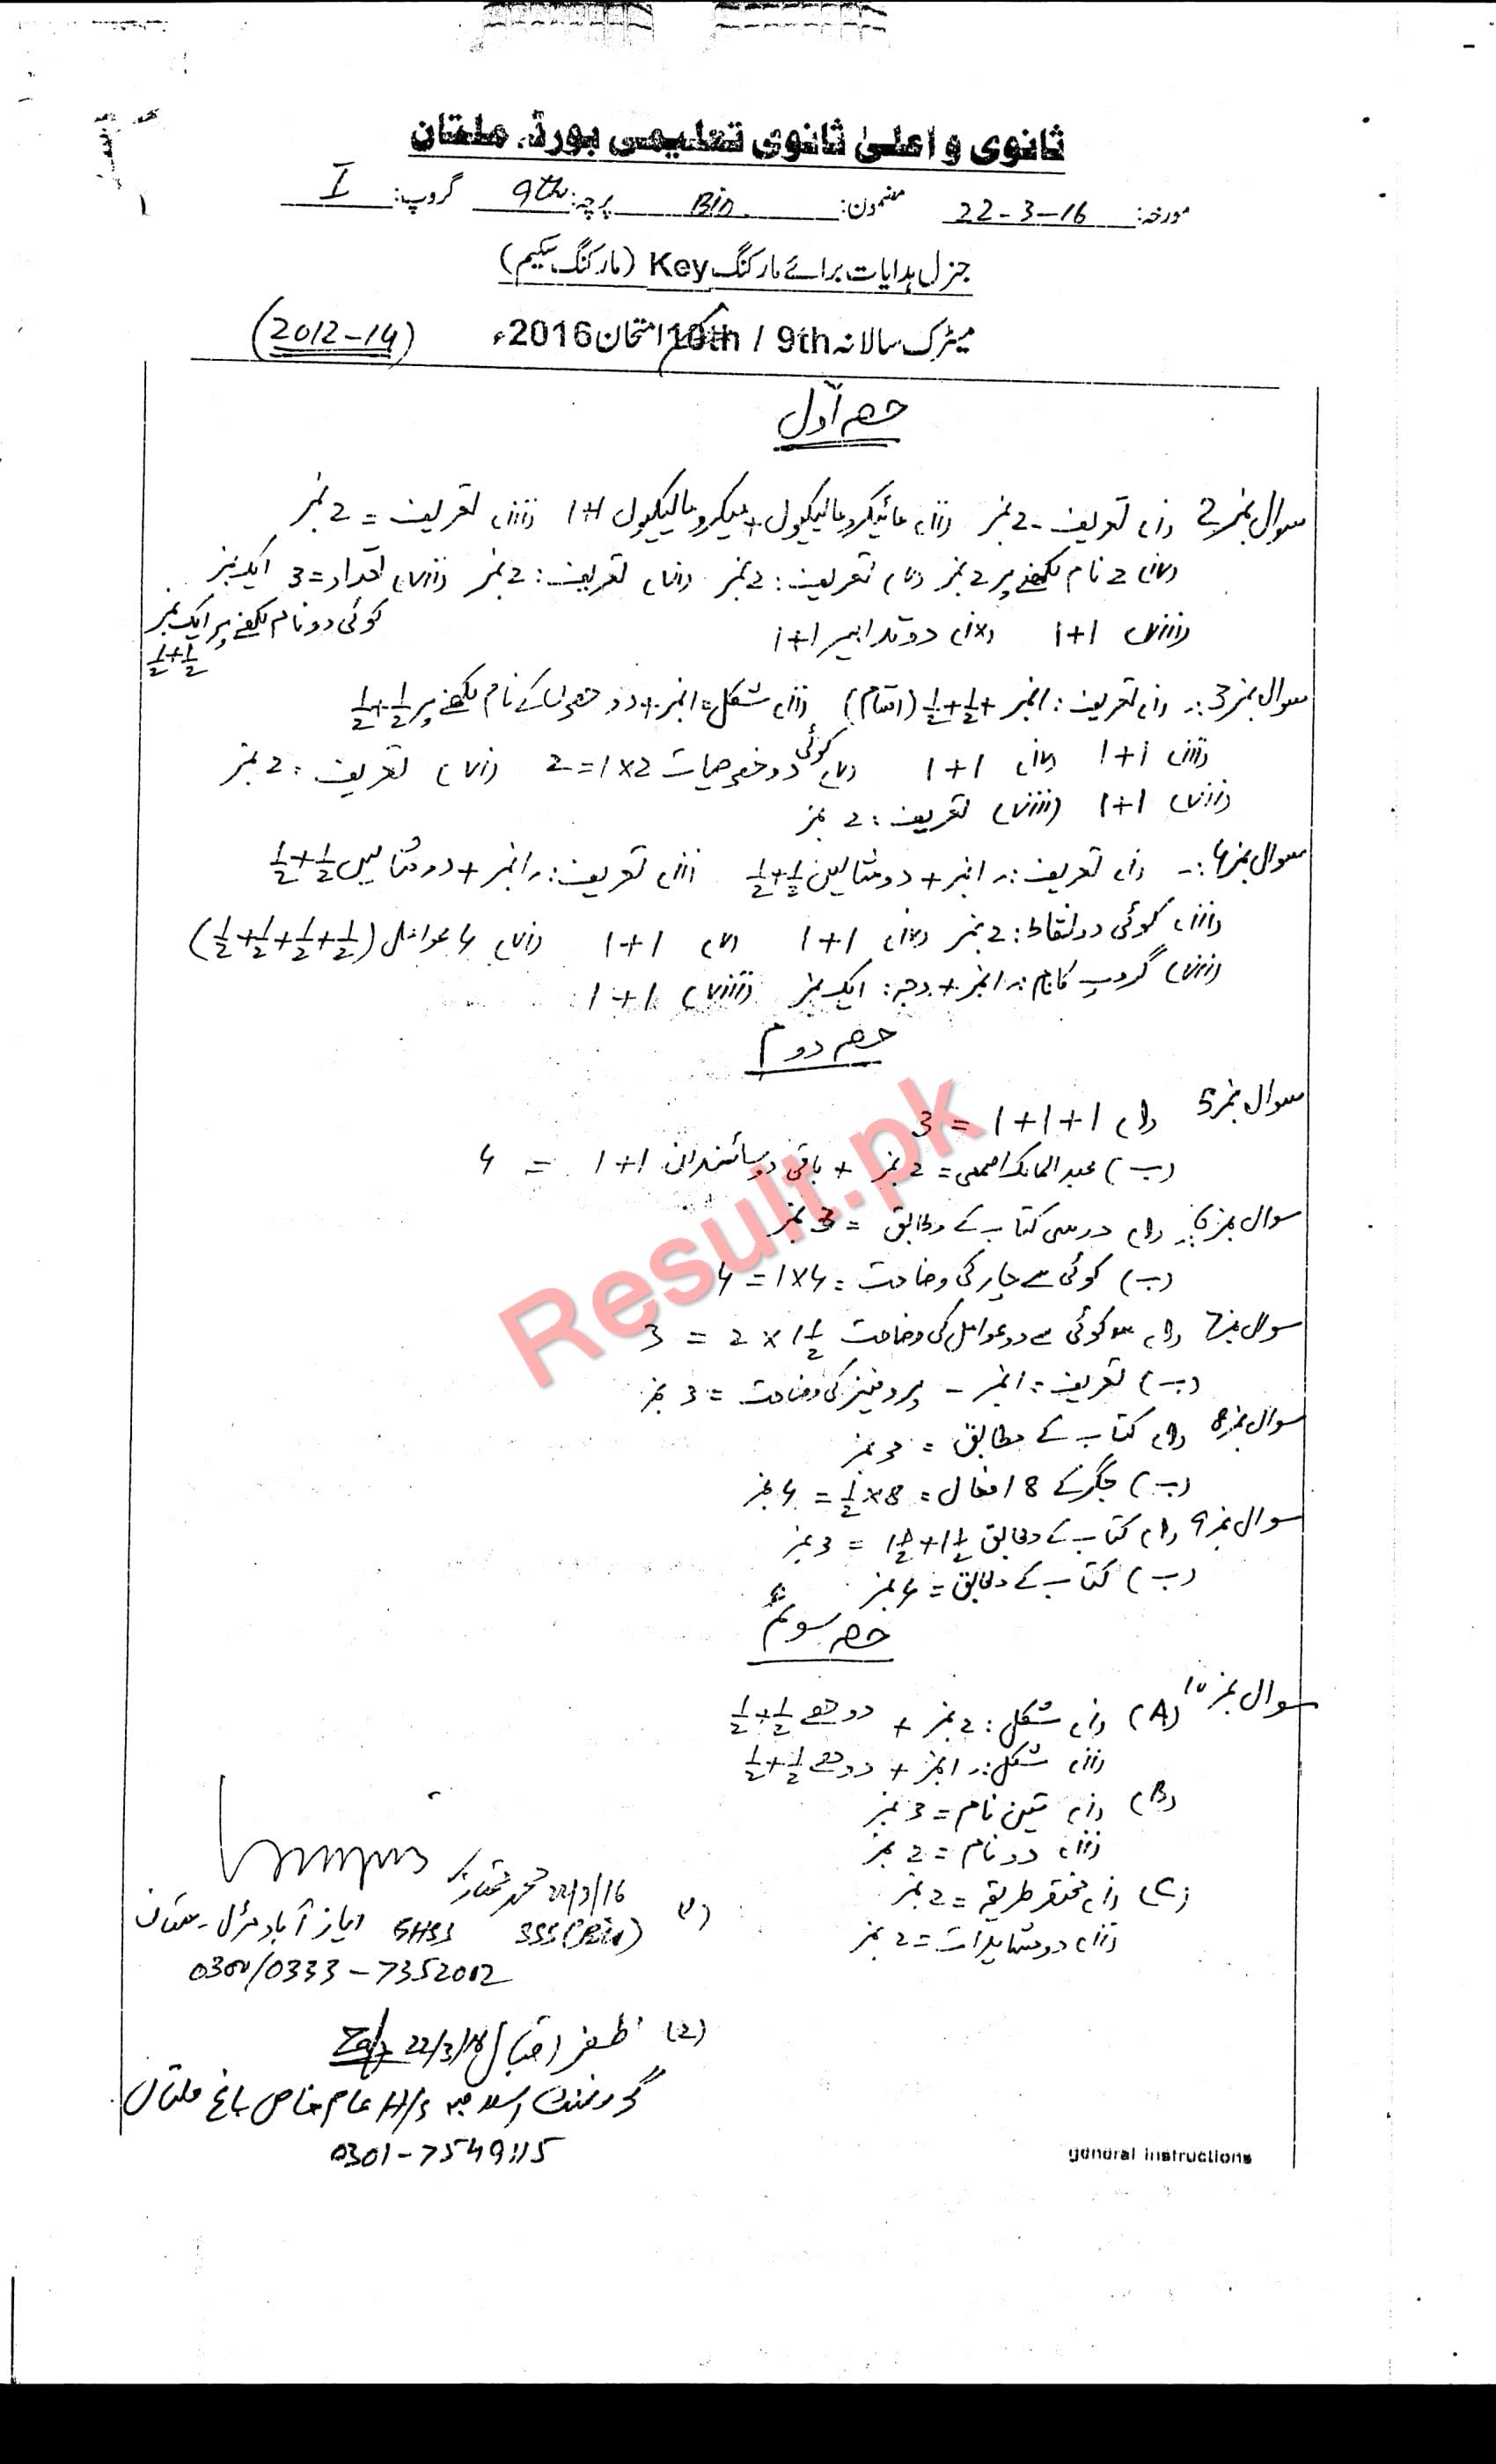 ثانوی و اعلیٰ ثانوی تعلیمی بورڈ، ملتان
مورخہ: 22-3-16 مضمون: Bio پرچہ: 9th گروپ: I
جنرل ہدایات برائے مارکنگ Key (مارکنگ سکیم)
میٹرک سالانہ 10th / 9th امتحان 2016ء (2012-14)
حصہ اول
سوال نمبر 2 (i) تعریف - 2 نمبر (ii) مائیکرو مالیکیول + میکرو مالیکیول 1+1 (iii) تعریف = 2 نمبر
(iv) 2 نام لکھنے پر 2 نمبر (v) تعریف: 2 نمبر (vi) تعریف: 2 نمبر (vii) تعداد = 3 ایک نمبر
کوئی دو نام لکھنے پر ایک نمبر
½+½
(viii) 1+1 (ix) دو تدابیر 1+1
سوال نمبر 3:۔ (i) تعریف: 1 نمبر + ½+½ (اقسام) (ii) شکل = 1 نمبر + دو حصوں کے نام لکھنے پر ½+½
(iii) 1+1 (iv) 1+1 (v) کوئی دو خصوصیات 2×1=2 (vi) تعریف: 2 نمبر
(vii) 1+1 (viii) تعریف: 2 نمبر
سوال نمبر 4:۔ (i) تعریف:۔ 1 نمبر + دو مثالیں ½+½ (ii) تعریف:۔ 1 نمبر + دو مثالیں ½+½
(iii) کوئی دو نقاط: 2 نمبر (iv) 1+1 (v) 1+1 (vi) 4 عوامل (½+½+½+½)
(vii) گروپ کا نام:۔ 1 نمبر + وجہ: ایک نمبر (viii) 1+1
حصہ دوم
سوال نمبر 5 (ا) 1+1+1 = 3
(ب) عبدالمالک اصمعی = 2 نمبر + باقی دو سائنسدان 1+1 = 4
سوال نمبر 6:۔ (ا) درسی کتاب کے مطابق = 3 نمبر
(ب) کوئی سے چار کی وضاحت = 1×4 = 4
سوال نمبر 7 (ا) کوئی سے دو عوامل کی وضاحت 2 × 1½ = 3
(ب) تعریف = 1 نمبر - پروفیز کی وضاحت = 3 نمبر
سوال نمبر 8 (ا) کتاب کے مطابق = 3 نمبر
(ب) جگر کے 8 افعال = ½×8 = 4 نمبر
سوال نمبر 9 (ا) کتاب کے مطابق 1½+1½ = 3 نمبر
(ب) کتاب کے مطابق = 4 نمبر
حصہ سوئم
سوال نمبر 10 (A) (i) شکل: 2 نمبر + دو حصے ½+½
(ii) شکل:۔ 1 نمبر + دو حصے ½+½
(B) (i) تین نام = 3 نمبر
(ii) دو نام = 2 نمبر
(C) (i) مختصر طریقہ = 2 نمبر
(ii) دو مشاہدات = 2 نمبر
22/3/16 محمد مختار
(1) SSS (Bio) GHSS ایاز آباد مڑل - ملتان
0300/0333-7352012
(2) ظفر اقبال 22/3/16 Zafar
گورنمنٹ اسلامیہ H/S عام خاص باغ ملتان
0301-7549115
general instructions
Result.pk